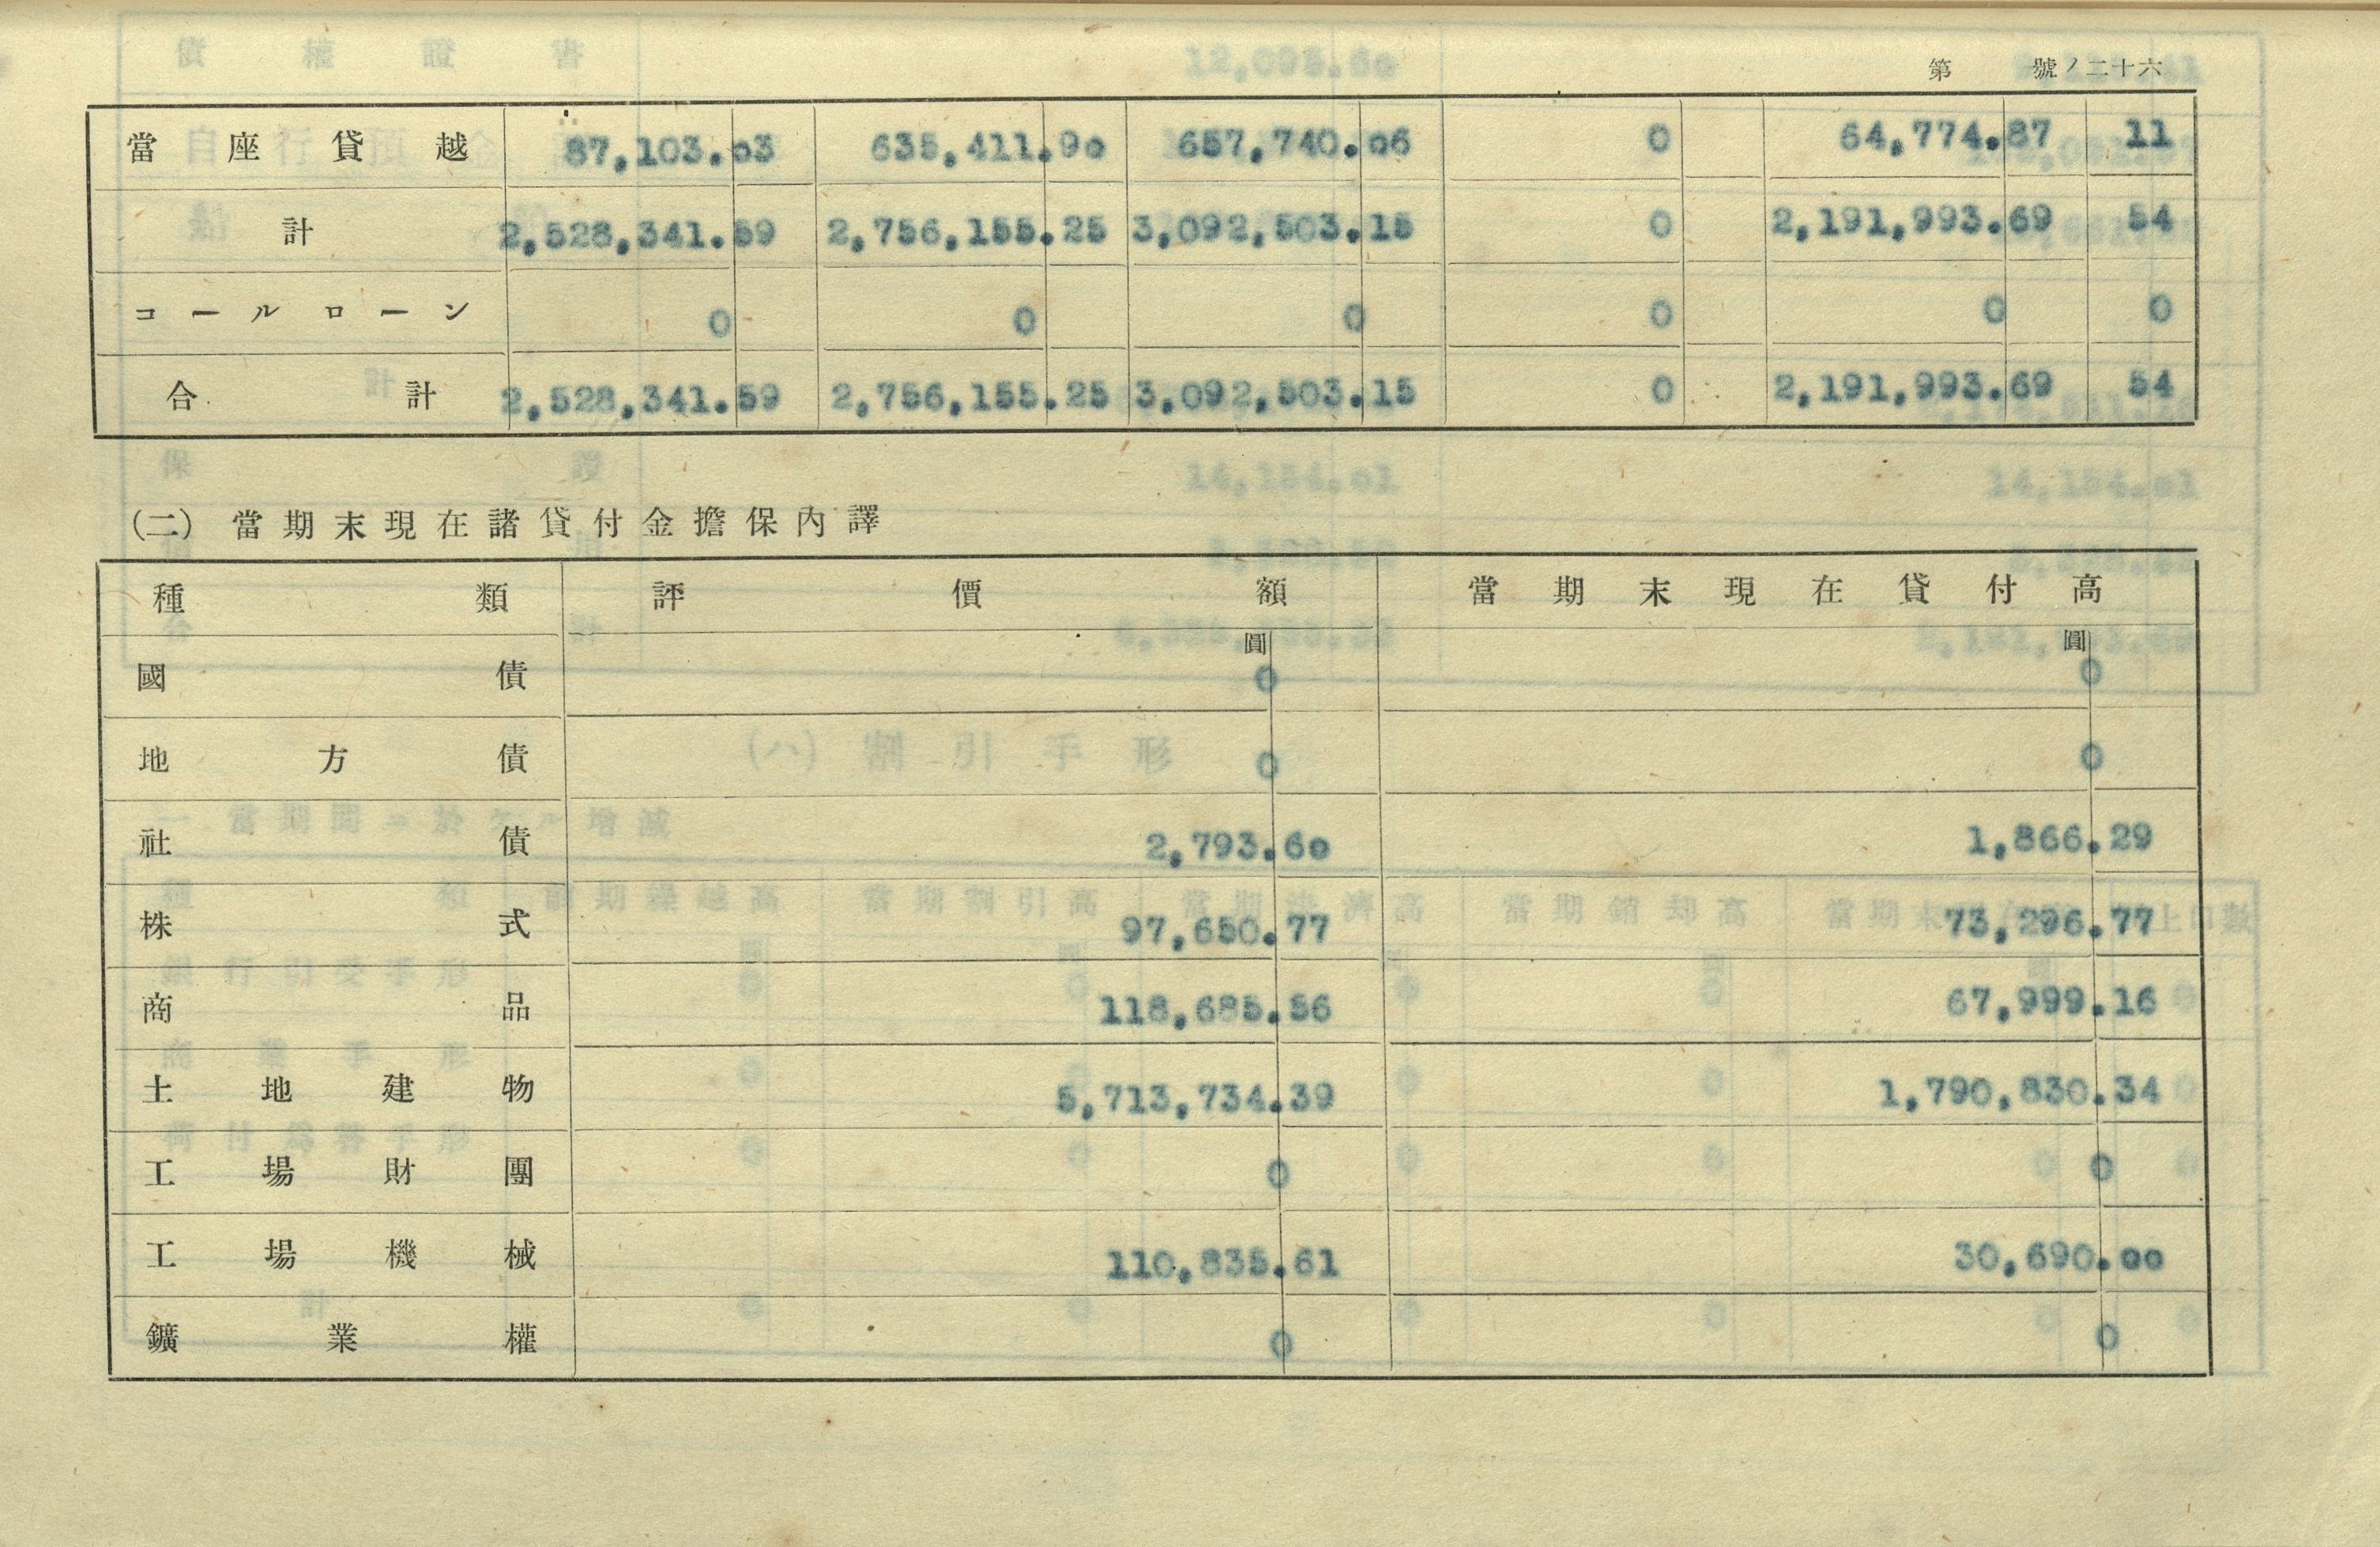 第 號ノ二十六
當座貸越 87,103.03 635,411.90 657,740.06 0 64,774.87 11
計 2,528,341.59 2,756,155.25 3,092,503.15 0 2,191,993.69 54
コールローン 0 0 0 0 0 0
合計 2,528,341.59 2,756,155.25 3,092,503.15 0 2,191,993.69 54
(二) 當期末現在諸貸付金擔保內譯
種類 評價額 當期末現在貸付高
圓 圓
國債 0 0
地方債 0 0
社債 2,793.60 1,866.29
株式 97,650.77 73,296.77
商品 118,685.56 67,999.16
土地建物 5,713,734.39 1,790,830.34
工場財團 0 0
工場機械 110,835.61 30,690.00
鑛業權 0 0